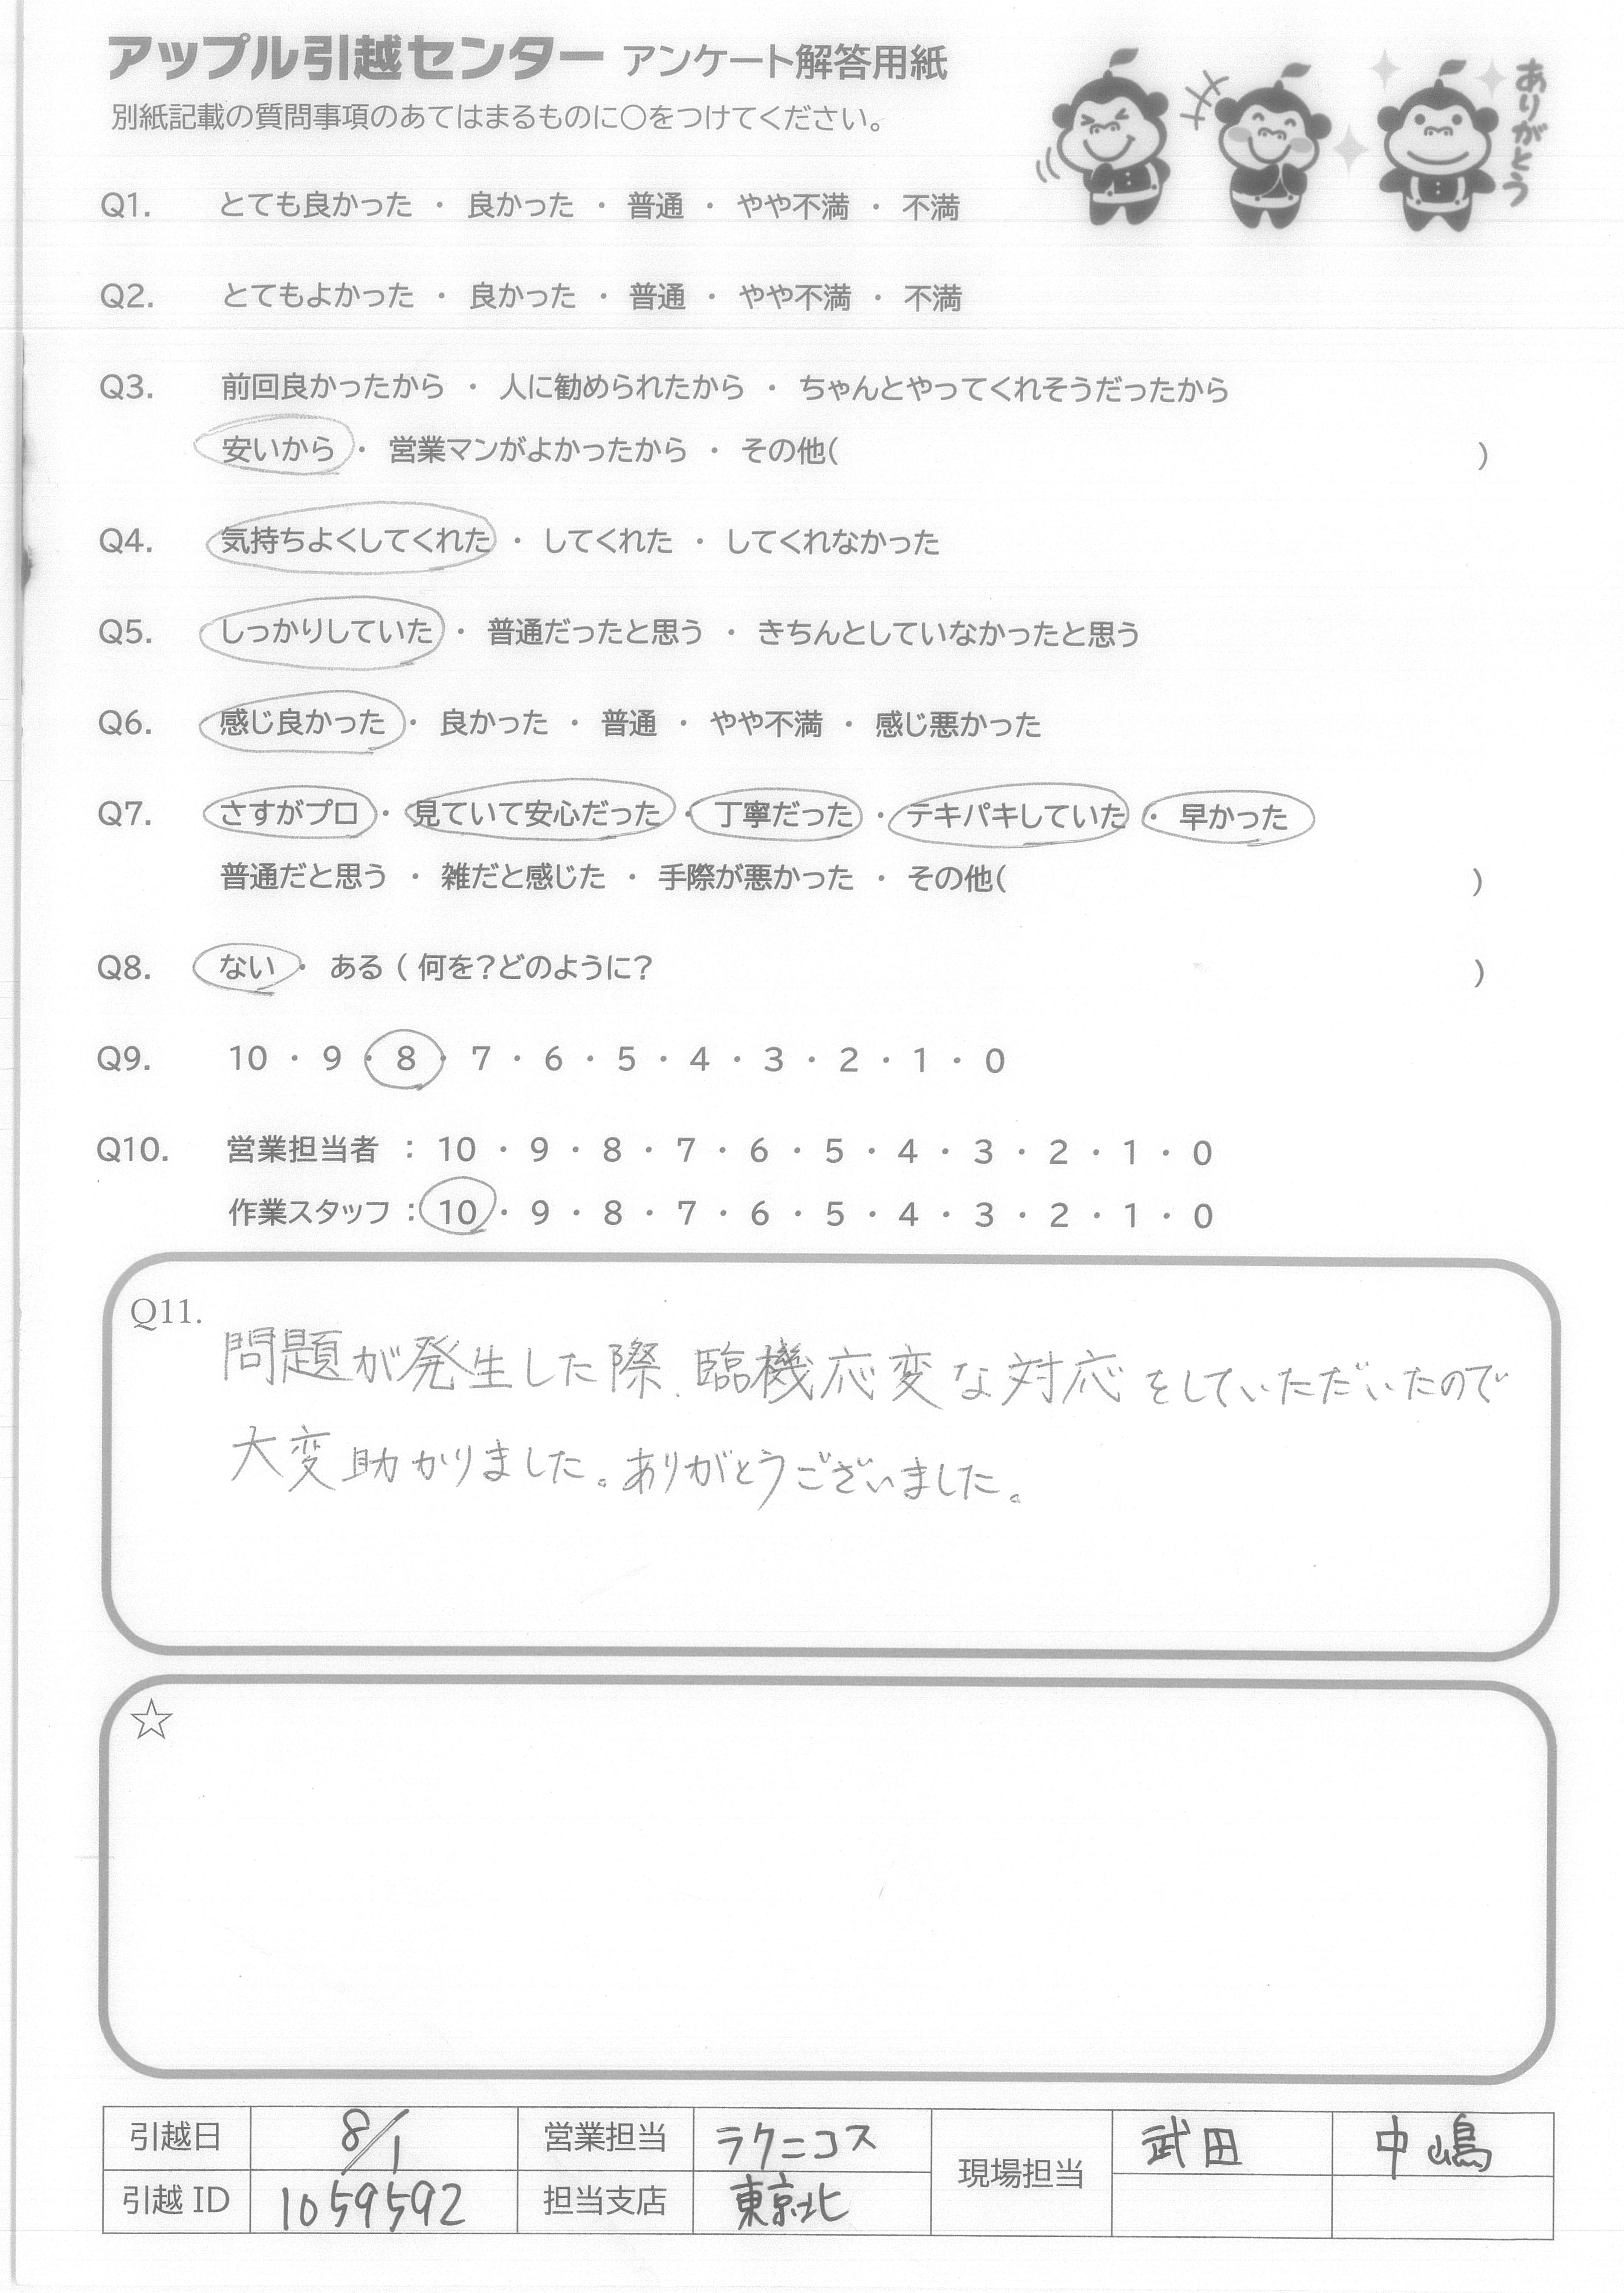 アップル引越センター アンケート解答用紙
ありがとう
別紙記載の質問事項のあてはまるものに〇をつけてください。
Q1. とても良かった ・ 良かった ・ 普通 ・ やや不満 ・ 不満
Q2. とてもよかった ・ 良かった ・ 普通 ・ やや不満 ・ 不満
Q3. 前回良かったから ・ 人に勧められたから ・ ちゃんとやってくれそうだったから
安いから ・ 営業マンがよかったから ・ その他( )
Q4. 気持ちよくしてくれた ・ してくれた ・ してくれなかった
Q5. しっかりしていた ・ 普通だったと思う ・ きちんとしていなかったと思う
Q6. 感じ良かった ・ 良かった ・ 普通 ・ やや不満 ・ 感じ悪かった
Q7. さすがプロ ・ 見ていて安心だった ・ 丁寧だった ・ テキパキしていた ・ 早かった
普通だと思う ・ 雑だと感じた ・ 手際が悪かった ・ その他( )
Q8. ない ・ ある ( 何を?どのように? )
Q9. 10 ・ 9 ・ 8 ・ 7 ・ 6 ・ 5 ・ 4 ・ 3 ・ 2 ・ 1 ・ 0
Q10. 営業担当者 : 10 ・ 9 ・ 8 ・ 7 ・ 6 ・ 5 ・ 4 ・ 3 ・ 2 ・ 1 ・ 0
作業スタッフ : 10 ・ 9 ・ 8 ・ 7 ・ 6 ・ 5 ・ 4 ・ 3 ・ 2 ・ 1 ・ 0
Q11.
問題が発生した際、臨機応変な対応をしていただいたので
大変助かりました。ありがとうございました。
☆
引越日 8/1 営業担当 ラクニコス 現場担当 武田 中嶋
引越 ID 1059592 担当支店 東京北